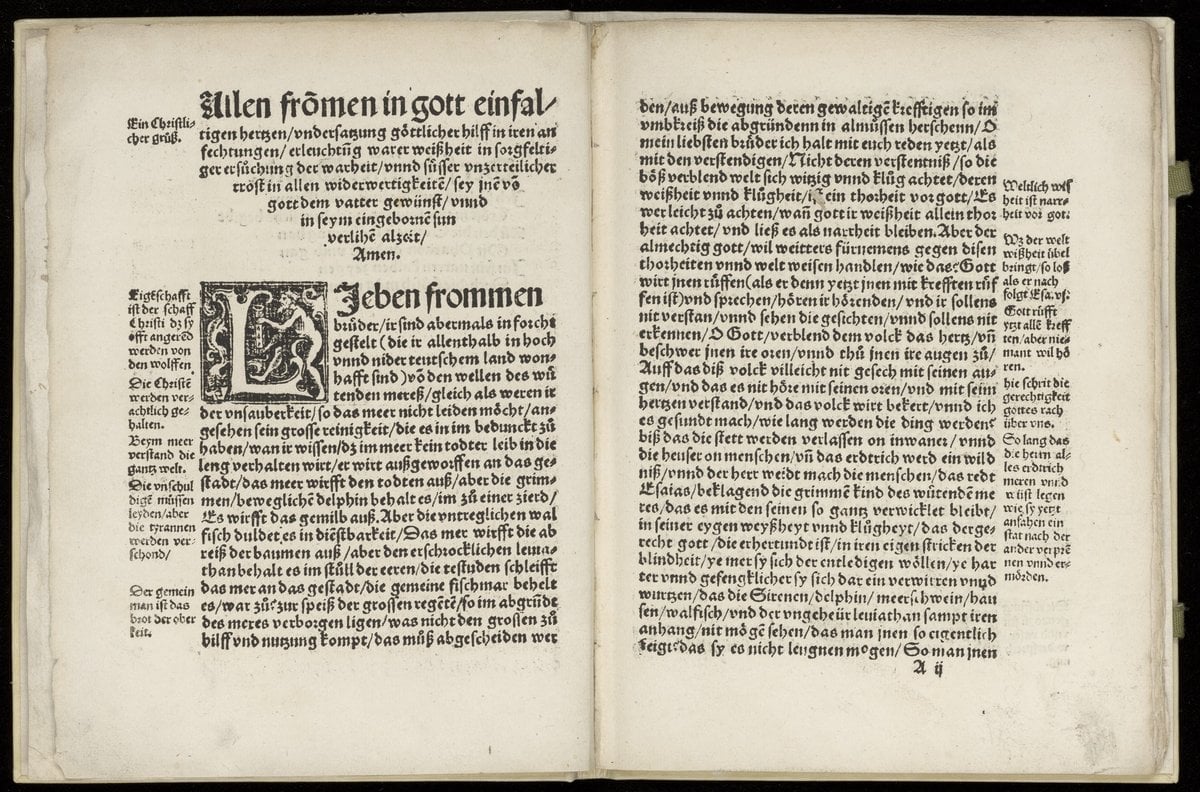 Ein Christli-
cher grůß.
Allen frõmen in gott einfal/
tigen hertzen/vndersatzung göttlicher hilff in iren an
fechtungen/erleuchtũg warer weißheit in sorgfelti-
ger ersůchung der warheit/vnnd sůsser vnzerteilicher
tröst in allen widerwertigkeitẽ/sey jnẽ võ
gott dem vatter gewünst/vnnd
in seym eingebornẽ sun
verlihẽ alzeit/
Amen.
Eigẽschafft
ist der schaff
Christi dz sy
offt angerẽd
werden von
den wolffen
Die Christẽ
werden ver-
achtlich ge-
halten.
Beym meer
verstand die
gantz welt.
Die vnschul
digẽ müssen
leyden/aber
die tyrannen
werden ver-
schond/
Der gemein
man ist das
brot der ober
keit.
LJeben frommen
brůder/ir sind abermals in forcht
gestelt (die ir allenthalb in hoch
vnnd nider teutschem land won-
hafft sind) võ den wellen des wů
tenden mereß/gleich als weren ir
der vnsauberkeit/so das meer nicht leiden möcht/an-
gesehen sein grosse reinigkeit/die es in im bedunckt zů
haben/wan ir wissen/dz im meer kein todter leib in die
leng verhalten wirt/er wirt außgeworffen an das ge-
stadt/das meer wirfft den todten auß/aber die grim-
men/beweglichẽ delphin behalt es/im zů einer zierd/
Es wirfft das gemilb auß. Aber die vntreglichen wal
fisch duldet es in diẽstbarkeit/Das mer wirfft die ab
reiß der baumen auß/aber den erschrocklichen leuia-
than behalt es im stůll der eeren/die testuden schleifft
das mer an das gestadt/die gemeine fischmar behelt
es/war zů? zur speiß der grossen regẽtẽ/so im abgrũdt
des meres verborgen ligen/was nicht den grossen zů
hilff vnd nutzung kompt/das můß abgescheiden wer
den/auß bewegung deren gewaltigẽ krefftigen so im
vmbkreiß die abgründenn in almůssen herschenn/O
mein liebsten brůder ich halt mit euch reden yetzt/als
mit den verstendigen/Nicht deren verstentniß/so die
böß verblend welt sich witzig vnnd klůg achtet/deren
weißheit vnnd klůgheit/ist ein thorheit vor gott/Es
wer leicht zů achten/wañ gott ir weißheit allein thor
heit achtet/vnd ließ es als narrheit bleiben. Aber der
almechtig gott/wil weitters fürnemens gegen disen
thorheiten vnnd welt weisen handlen/wie das? Gott
wirt jnen růffen(als er denn yetzt jnen mit krefften růf
fen ist)vnd sprechen/hören ir hörenden/vnd ir sollens
nit verstan/vnnd sehen die gesichten/vnnd sollens nit
erkennen/O Gott/verblend dem volck das hertz/vñ
beschwer jnen ire oren/vnnd thů jnen ire augen zů/
Auff das diß volck villeicht nit gesech mit seinen au-
gen/vnd das es nit höre mit seinen oren/vnd mit seim
hertzen verstand/vnd das volck wirt bekert/vnnd ich
es gesund mach/wie lang werden die ding werden?
biß das die stett werden verlassen on inwaner/vnnd
die heuser on menschen/vñ das erdtrich werd ein wild
niß/vnnd der herr weidt mach die menschen/das redt
Esaias/beklagend die grimmẽ kind des wütendẽ me
res/das es mit den seinen so gantz verwicklet bleibt/
in seiner eygen weyßheyt vnnd klůgheyt/das der ge-
recht gott/die erhertundt ist/in iren eigen stricken der
blindheit/ye mer sy sich der entledigen wöllen/ye har
ter vnnd gefengklicher sy sich dar ein verwirren vnnd
wurtzen/das die Sirenen/delphin/meerschwein/hau
sen/walfisch/vnd der vngeheür leuiathan sampt iren
anhang/nit mögẽ sehen/das man jnen so eigentlich
zeigt/das sy es nicht leugnen mogen/So man jnen
A ij
Weltlich wiß
heit ist narr-
heit vor got.
Wz der welt
wißheit übel
bringt/so loß
als er nach
folgt Esa. vj.
Gott růfft
yetzt allẽ kreff
ten/aber nie-
mant wil hö
ren.
hie schrit die
gerechtigkeit
gottes rach
über vns.
So lang das
die herrn al-
les erdtrich
meren vnnd
wüst legen
wie sy yetzt
anfahen ein
stat nach der
ander verprẽ
nen vnnd er-
mörden.